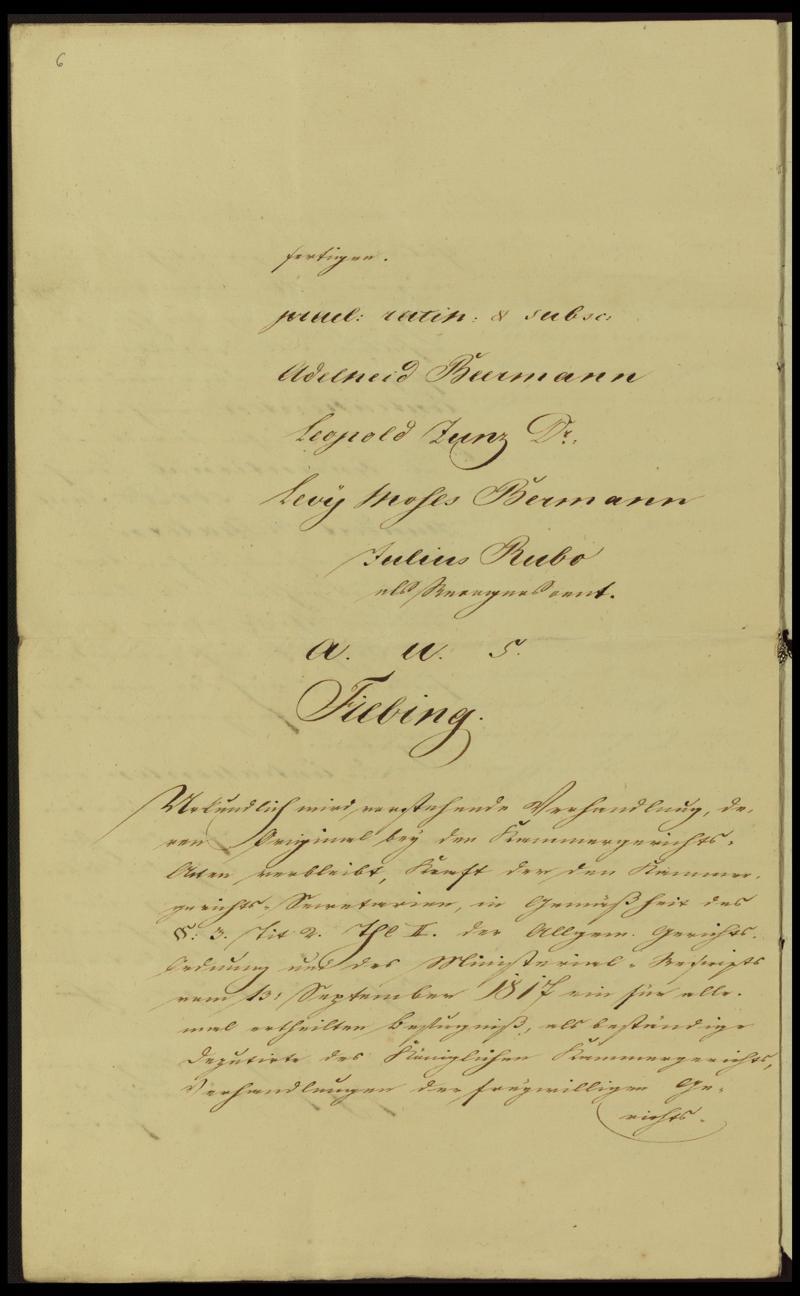 6
fertigen.
prael: ratih: & subsc:
Adelheid Beermann
Leopold Zunz Dr.
Levÿ Moses Bermann
Julius Rubo
als Recognoscent.
a. u. s.
Fiebing.
Urkundlich wird vorstehende Verhandlung, de-
ren Original bey den Kammergerichts-
Akten verbleibt, Kraft der den Kammer-
gerichts-Secretarien, in Gemäßheit des
§: 3. Tit 2. Thl II. der Allgem. Gerichts-
Ordnung und des Ministerial-Rescripts
vom 13: September 1817 ein für alle-
mal ertheilten Befugniß, als beständige
Deputirte des Königlichen Kammergerichts,
Verhandlungen der freÿwilligen Ge-
richts-